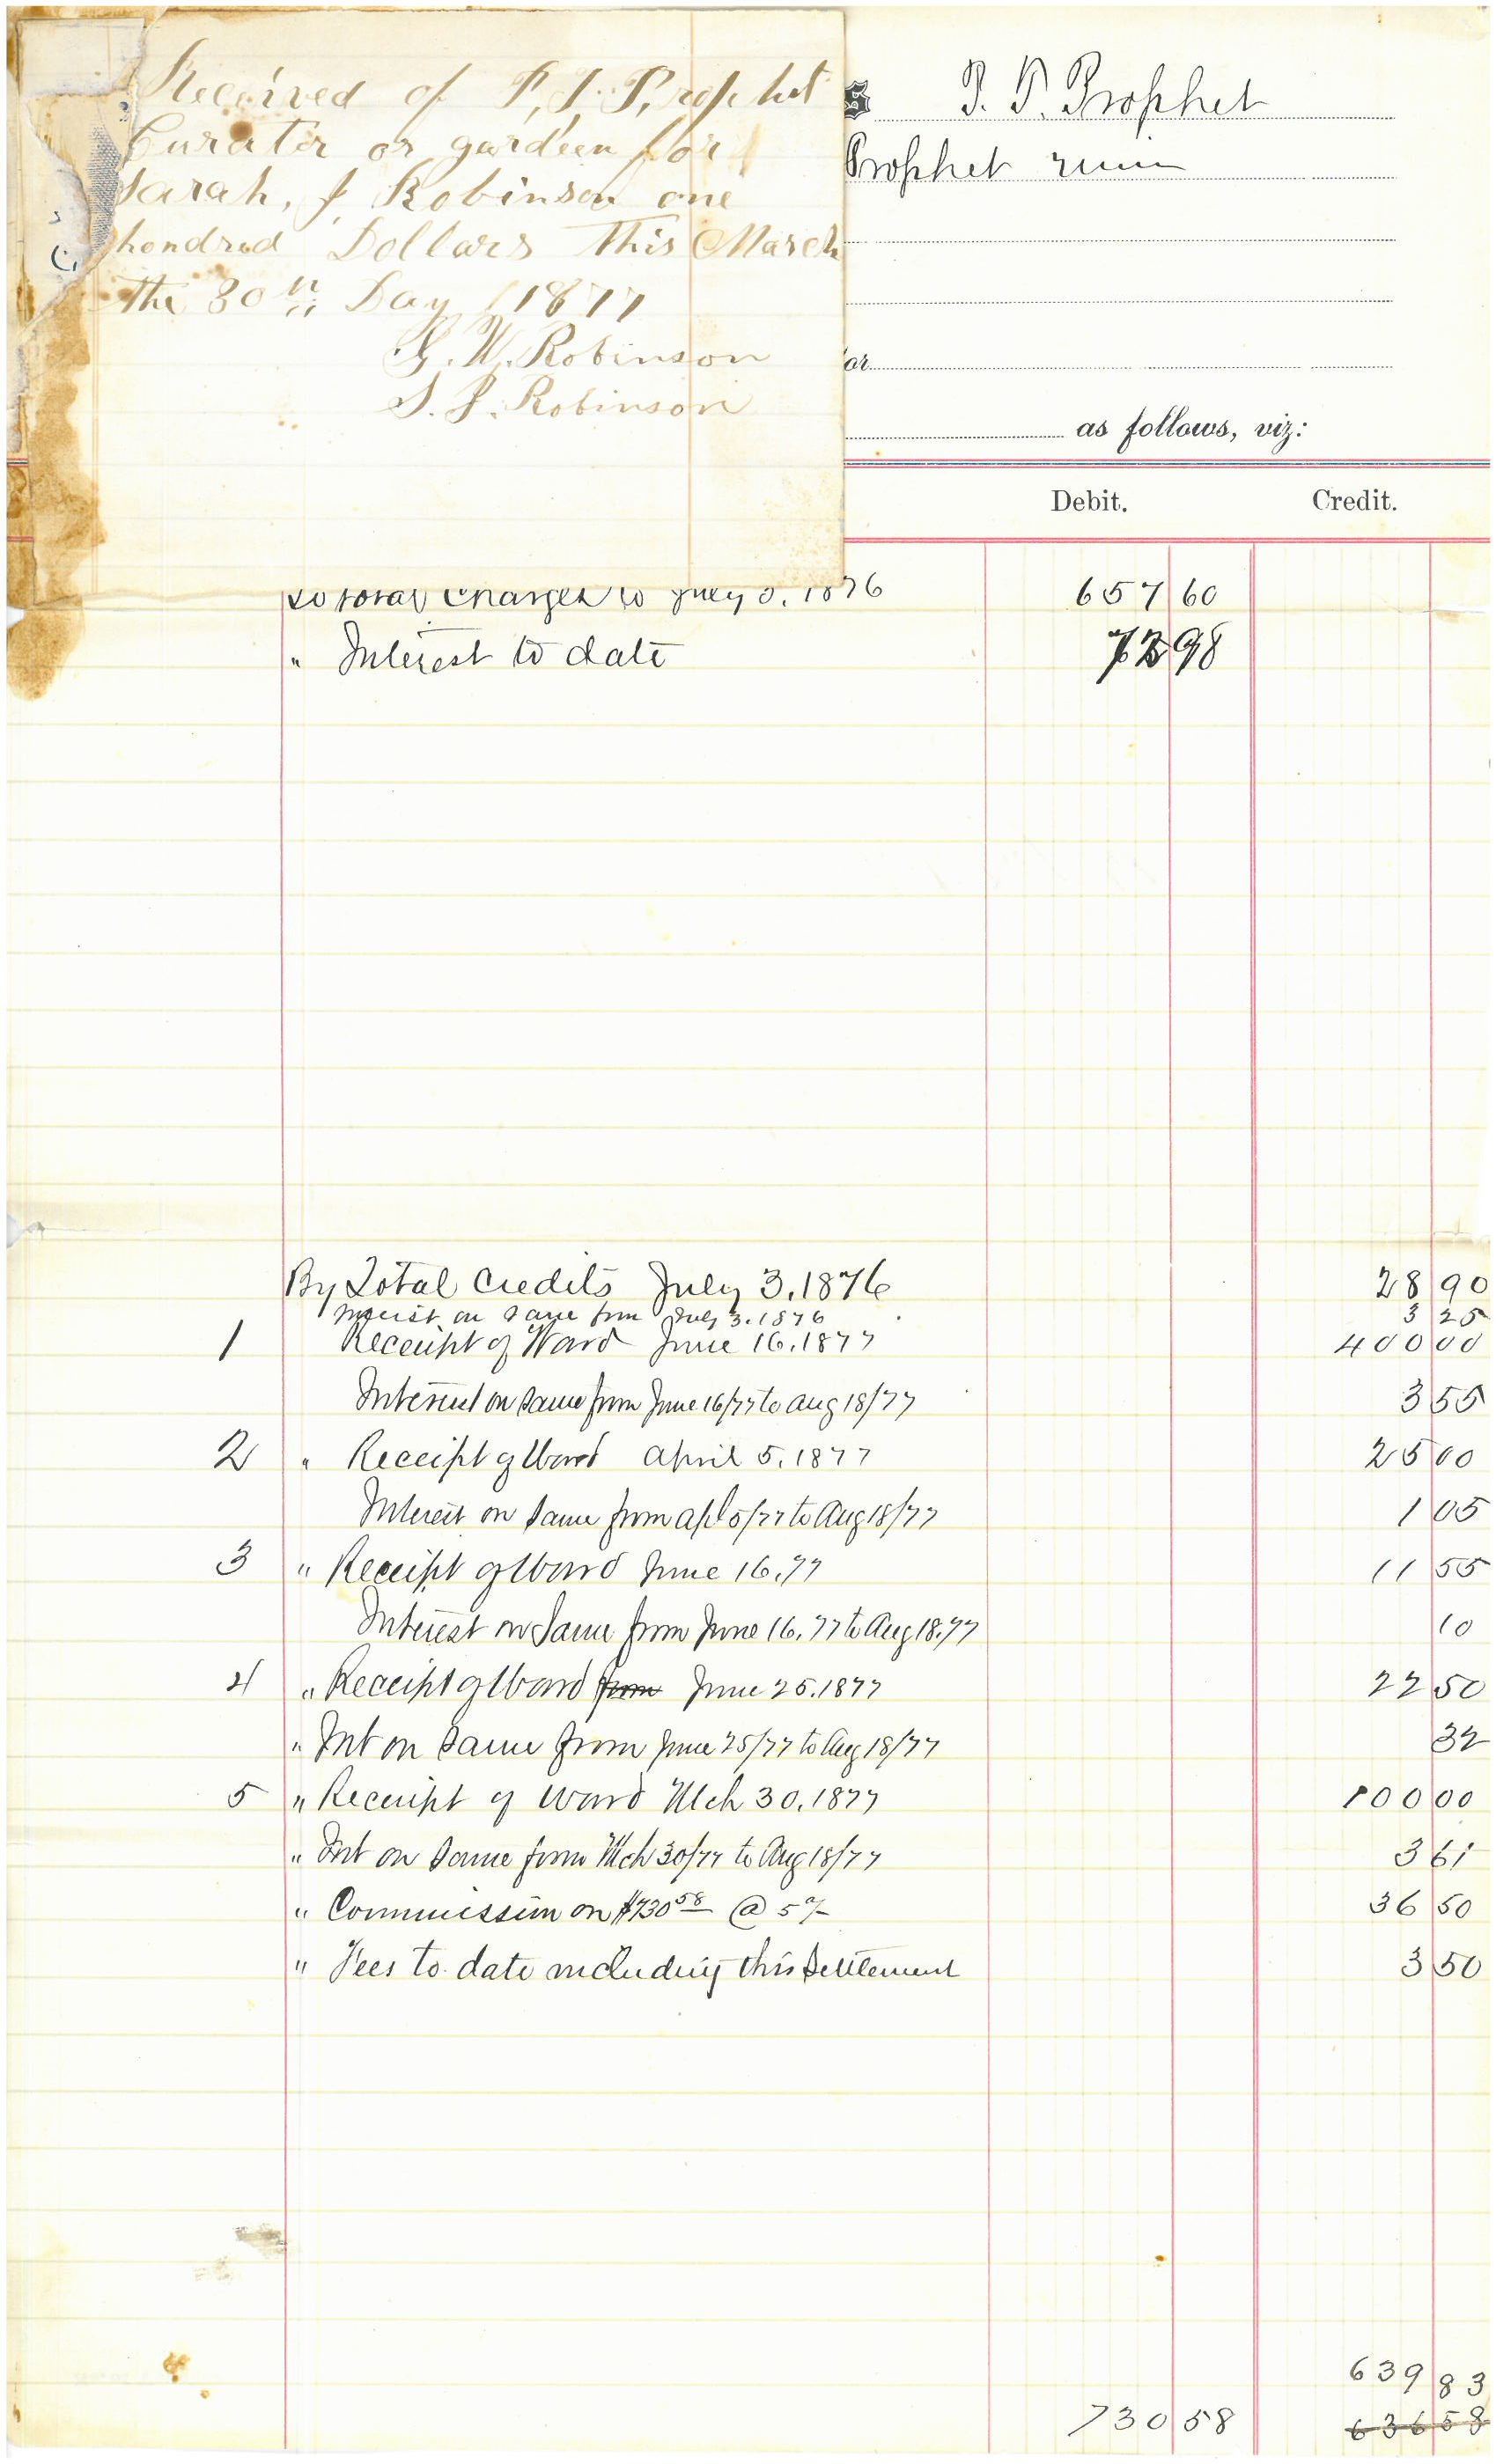 Received of P, J. Prophet
Curater or gardeen for
Sarah, J Robinson one
hondred Dollars This March
the 30th Day 1877
G. W. Robinson
S. J. Robinson
P. P. Prophet
Prophet
as follows, viz:
Debit. Credit.
To total Charges to July 3, 1876 657 60
" Interest to date 72 98
By Total Credits July 3, 1876 28 90
Interest on same from July 3. 1876 3 25
1 Receipt of Ward June 16, 1877 400 00
Interest on same from June 16/77 to Aug 18/77 3 55
2 " Receipt of Ward April 5, 1877 25 00
Interest on same from Apl 5/77 to Aug 18/77 1 05
3 " Receipt of Ward June 16, 77 11 55
Interest on same from June 16, 77 to Aug 18, 77 10
4 " Receipt of Ward from June 25, 1877 22 50
" Int on same from June 25/77 to Aug 18/77 32
5 " Receipt of Ward Mch 30, 1877 100 00
" Int on same from Mch 30/77 to Aug 18/77 3 61
" Commission on $730 58 @ 5% 36 50
" Fees to date including this settlement 3 50
639 83
730 58 636 58